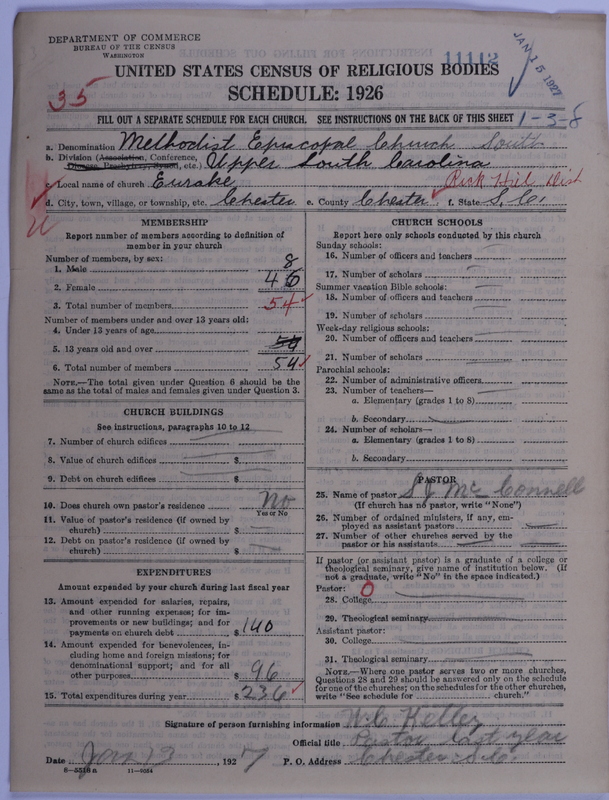 DEPARTMENT OF COMMERCE
BUREAU OF THE CENSUS
WASHINGTON
11112
JAN 15 1927
UNITED STATES CENSUS OF RELIGIOUS BODIES
SCHEDULE: 1926
35
FILL OUT A SEPARATE SCHEDULE FOR EACH CHURCH. SEE INSTRUCTIONS ON THE BACK OF THIS SHEET 1-3-8
a. Denomination Methodist Episcopal Church South
b. Division (Association, Conference, Diocese, Presbytery, Synod, etc.) Upper South Carolina
c. Local name of church
Rock Hill Dist
d. City, town, village, or township, etc. Chester e. County Chester f. State S.C.
MEMBERSHIP
Report number of members according to definition of
member in your church
Number of members, by sex:
1. Male 8
2. Female 46
3. Total number of members 54
Number of members under and over 13 years old:
4. Under 13 years of age
5. 13 years old and over 54
6. Total number of members 54
NOTE.—The total given under Question 6 should be the
same as the total of males and females given under Question 3.
CHURCH BUILDINGS
See instructions, paragraphs 10 to 12
7. Number of church edifices
8. Value of church edifices $
9. Debt on church edifices $
10. Does church own pastor's residence No
Yes or No
11. Value of pastor's residence (if owned by
church) $
12. Debt on pastor's residence (if owned by
church) $
EXPENDITURES
Amount expended by your church during last fiscal year
13. Amount expended for salaries, repairs,
and other running expenses; for im-
provements or new buildings; and for
payments on church debt $ 140
14. Amount expended for benevolences, in-
cluding home and foreign missions; for
denominational support; and for all
other purposes $ 96
15. Total expenditures during year $ 236
CHURCH SCHOOLS
Report here only schools conducted by this church
Sunday schools:
16. Number of officers and teachers
17. Number of scholars
Summer vacation Bible schools:
18. Number of officers and teachers
19. Number of scholars
Week-day religious schools:
20. Number of officers and teachers
21. Number of scholars
Parochial schools:
22. Number of administrative officers
23. Number of teachers—
a. Elementary (grades 1 to 8)
b. Secondary
24. Number of scholars—
a. Elementary (grades 1 to 8)
b. Secondary
PASTOR
25. Name of pastor S J McConnell
(If church has no pastor, write "None")
26. Number of ordained ministers, if any, em-
ployed as assistant pastors
27. Number of other churches served by the
pastor or his assistants
If pastor (or assistant pastor) is a graduate of a college or
theological seminary, give name of institution below. (If
not a graduate, write "No" in the space indicated.)
Pastor: 0
28. College
29. Theological seminary
Assistant pastor:
30. College
31. Theological seminary
NOTE.—Where one pastor serves two or more churches,
Questions 28 and 29 should be answered only on the schedule
for one of the churches; on the schedules for the other churches,
write "See schedule for ______ church."
Signature of person furnishing information W. C. Kelley
Official title Pastor last year
Date Jan 13, 1927 P. O. Address Chester S.C.
8-5518 a 11-9034